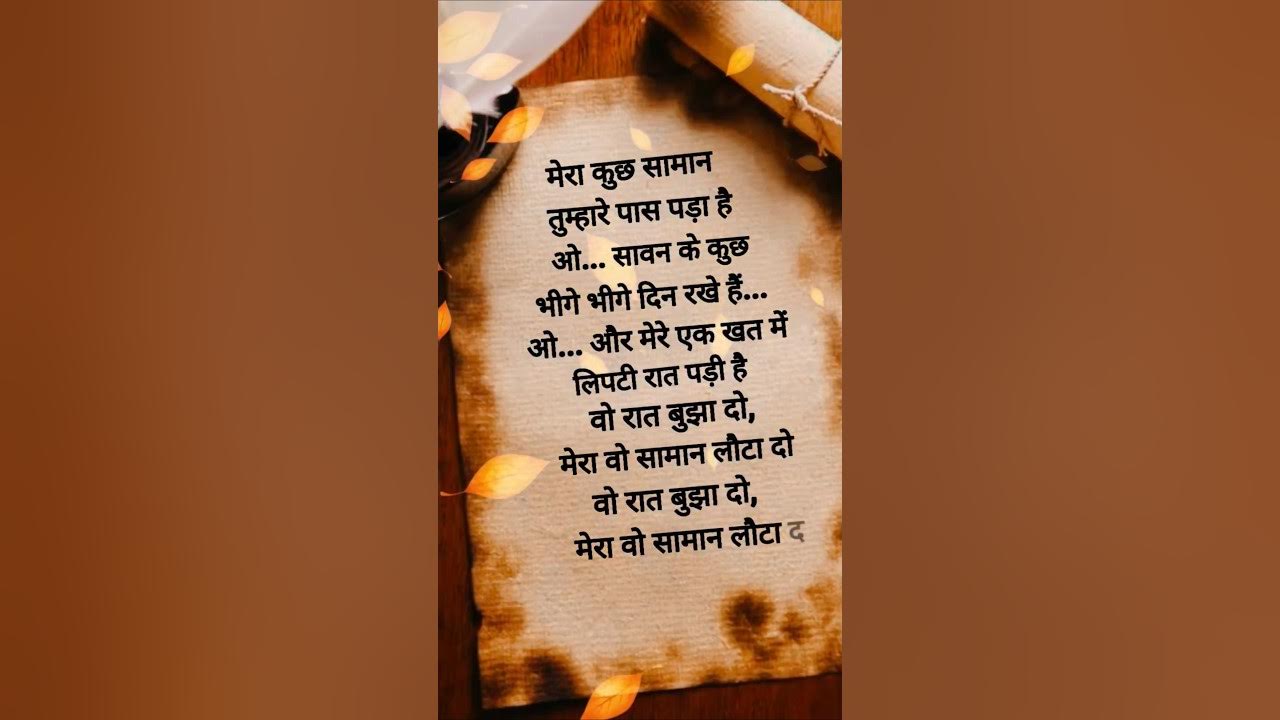 मेरा कुछ सामान
तुम्हारे पास पड़ा है
ओ... सावन के कुछ
भीगे भीगे दिन रखे हैं...
ओ... और मेरे एक खत में
लिपटी रात पड़ी है
वो रात बुझा दो,
मेरा वो सामान लौटा दो
वो रात बुझा दो,
मेरा वो सामान लौटा द